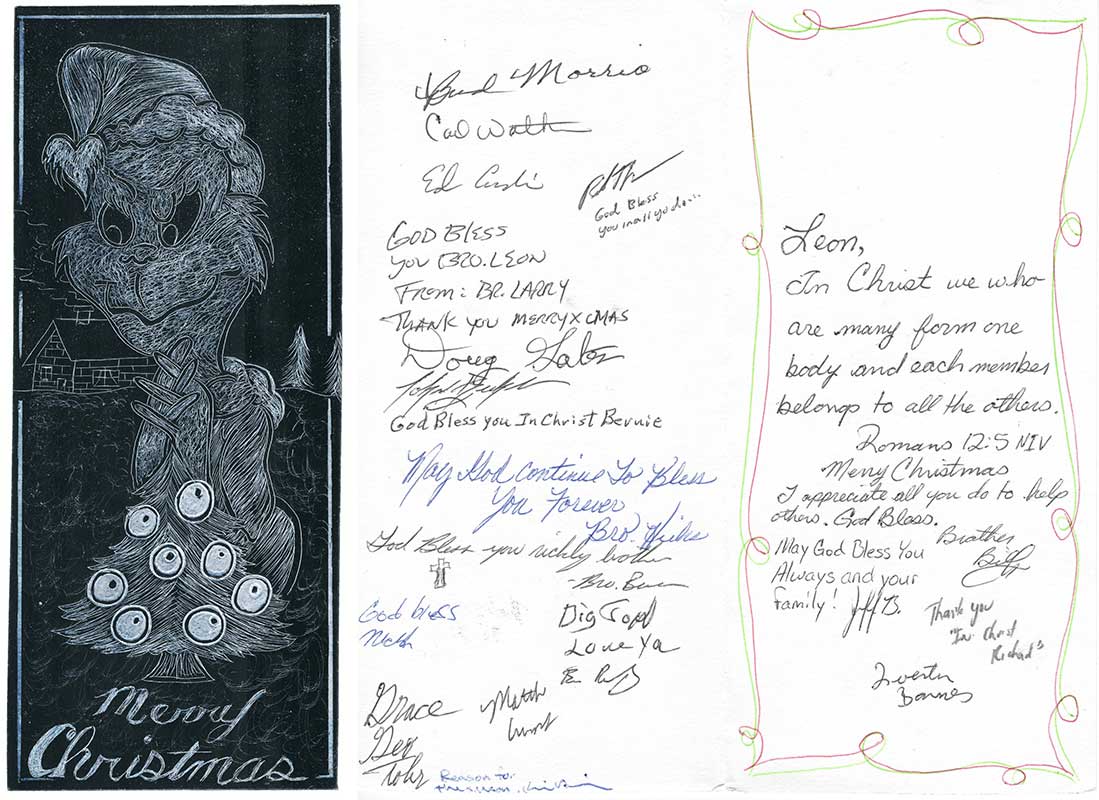 Merry
Christmas
Bud Morris
Ed
God Bless
you in all you do...
GOD BLESS
YOU BRO. LEON
FROM: BR. LARRY
THANK YOU MERRY XMAS
Doug
God Bless you In Christ Bernie
May God Continue To Bless
You Forever
Bro.
God Bless you richly brother
-Bro.
God bless
Love Ya
Grace
Reason for
the season.
Leon,
In Christ we who
are many form one
body and each member
belongs to all the others.
Romans 12:5 NIV
Merry Christmas
I appreciate all you do to help
others. God Bless.
Brother
Bill
May God Bless You
Always and your
family! Jeff B.
Thank you
"In Christ
Richard"
Barnes